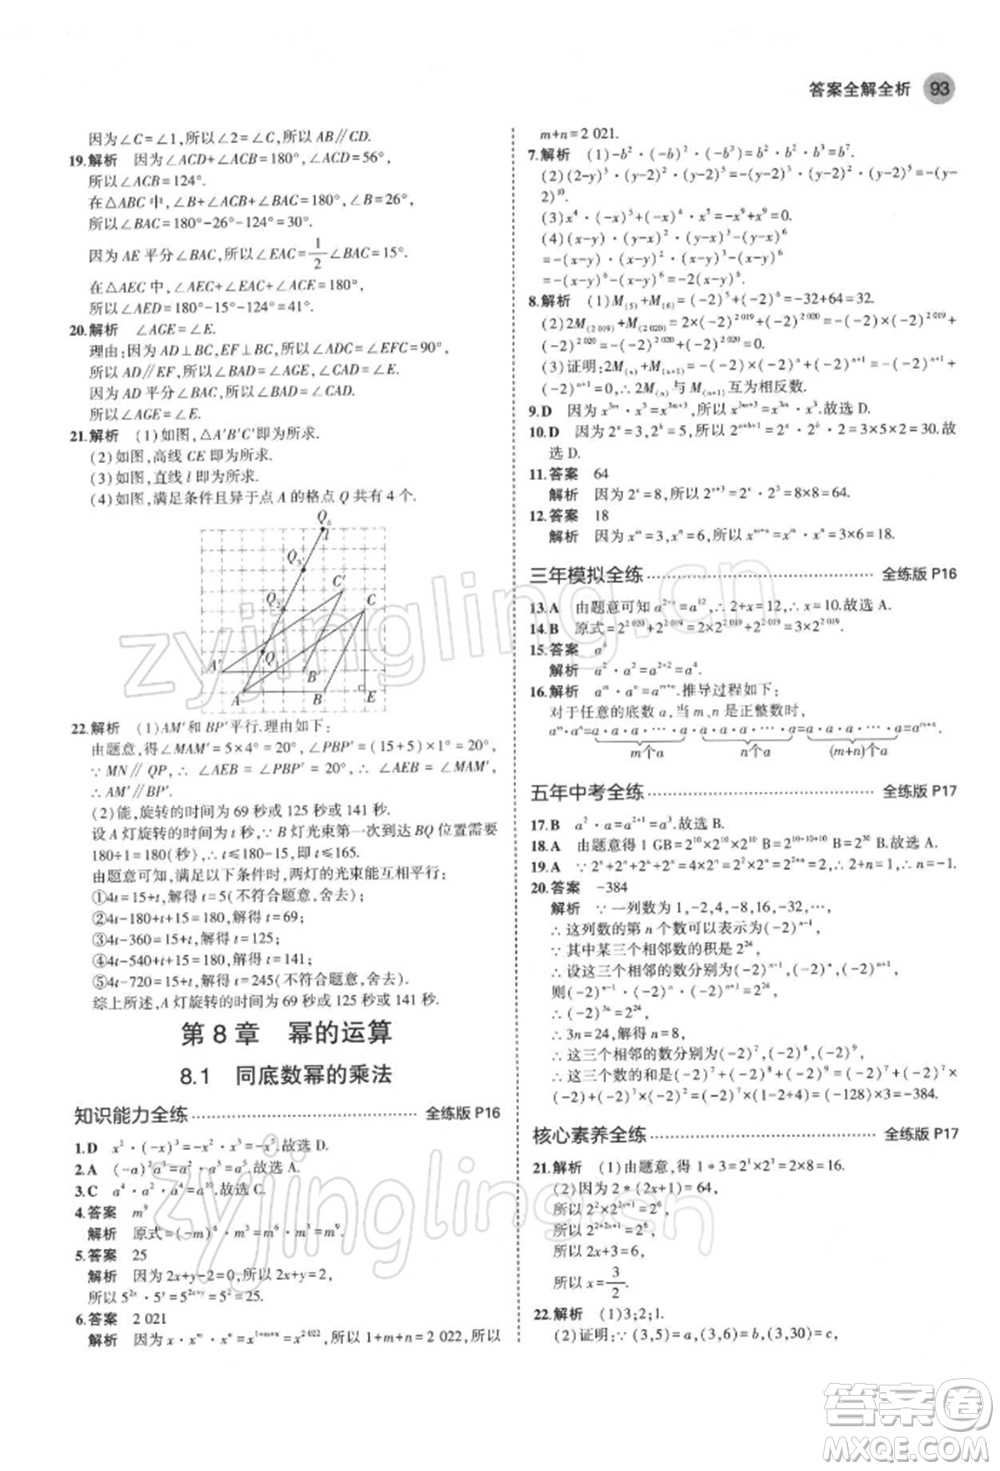 答案全解全析 93
因为∠C=∠1,所以∠2=∠C,所以AB∥CD.
19.解析 因为∠ACD+∠ACB=180°,∠ACD=56°,
所以∠ACB=124°.
在△ABC中,∠B+∠ACB+∠BAC=180°,∠B=26°,
所以∠BAC=180°-26°-124°=30°.
因为AE平分∠BAC,所以∠EAC=1/2∠BAC=15°.
在△AEC中,∠AEC+∠EAC+∠ACE=180°,
所以∠AED=180°-15°-124°=41°.
20.解析 ∠AGE=∠E.
理由:因为AD⊥BC,EF⊥BC,所以∠ADC=∠EFC=90°,
所以AD∥EF,所以∠BAD=∠AGE,∠CAD=∠E.
因为AD平分∠BAC,所以∠BAD=∠CAD,
所以∠AGE=∠E.
21.解析 (1)如图,△A'B'C'即为所求.
(2)如图,高线CE即为所求.
(3)如图,直线l即为所求.
(4)如图,满足条件且异于点A的格点Q共有4个.
Q₄
l
Q₃
C'
Q₂
C
Q
A'
B'
A
B
E
22.解析 (1)AM'和BP'平行.理由如下:
由题意,得∠MAM'=5×4°=20°,∠PBP'=(15+5)×1°=20°,
∵MN∥QP,∴∠AEB=∠PBP'=20°,∴∠AEB=∠MAM',
∴AM'∥BP'.
(2)能,旋转的时间为69秒或125秒或141秒.
设A灯旋转的时间为t秒,∵B灯光束第一次到达BQ位置需要
180÷1=180(秒),∴t≤180-15,即t≤165.
由题意可知,满足以下条件时,两灯的光束能互相平行:
①4t=15+t,解得t=5(不符合题意,舍去);
②4t-180+t+15=180,解得t=69;
③4t-360=t+15,解得t=125;
④4t-540+t+15=180,解得t=141;
⑤4t-720=t+15,解得t=245(不符合题意,舍去).
综上所述,A灯旋转的时间为69秒或125秒或141秒.
第8章 幂的运算
8.1 同底数幂的乘法
知识能力全练 全练版P16
1.D x²·(-x)³=-x²·x³=-x⁵.故选D.
2.A (-a)²·a³=a²·a³=a⁵.故选A.
3.C a⁴·a²·a³=a⁹.故选C.
4.答案 m⁹
解析 原式=(-m)⁶·m³=m⁶·m³=m⁹.
5.答案 25
解析 因为2x+y-2=0,所以2x+y=2,
所以5²ˣ·5ʸ=5²ˣ⁺ʸ=5²=25.
6.答案 2 021
解析 因为x·xᵐ·xⁿ=x¹⁺ᵐ⁺ⁿ=x²⁰²²,所以1+m+n=2 022,所以
m+n=2 021.
7.解析 (1)-b²·(-b)²·(-b³)=b²·b²·b³=b⁷.
(2)(2-y)³·(y-2)²·(y-2)⁵=-(y-2)³·(y-2)²·(y-2)⁵=-(y-
2)¹⁰.
(3)x⁴·(-x)⁵+(-x)⁶·x³=-x⁹+x⁹=0.
(4)(x-y)·(y-x)³·(x-y)²+(y-x)·(x-y)⁵
=-(x-y)·(x-y)³·(x-y)²-(x-y)·(x-y)⁵
=-(x-y)⁶-(x-y)⁶=-2(x-y)⁶.
8.解析 (1)M₍₅₎+M₍₆₎=(-2)⁵+(-2)⁶=-32+64=32.
(2)2M₍₂₀₁₉₎+M₍₂₀₂₀₎=2×(-2)²⁰¹⁹+(-2)²⁰²⁰=-(-2)×(-2)²⁰¹⁹+
(-2)²⁰²⁰=-(-2)²⁰²⁰+(-2)²⁰²⁰=0.
(3)证明:2M₍ₙ₎+M₍ₙ₊₁₎=-(-2)×(-2)ⁿ+(-2)ⁿ⁺¹=-(-2)ⁿ⁺¹+
(-2)ⁿ⁺¹=0,∴2M₍ₙ₎与M₍ₙ₊₁₎互为相反数.
9.D 因为x³ᵐ·x³=x³ᵐ⁺³,所以x³ᵐ⁺³=x³ᵐ·x³.故选D.
10.D 因为2ᵃ=3,2ᵇ=5,所以2ᵃ⁺ᵇ⁺¹=2ᵃ·2ᵇ·2=3×5×2=30.故
选D.
11.答案 64
解析 因为2ˣ=8,所以2ˣ⁺³=2ˣ·2³=8×8=64.
12.答案 18
解析 因为xᵐ=3,xⁿ=6,所以xᵐ⁺ⁿ=xᵐ·xⁿ=3×6=18.
三年模拟全练 全练版P16
13.A 由题意可知a²⁺ˣ=a¹²,∴2+x=12,∴x=10.故选A.
14.B 原式=2²⁰²⁰+2²⁰¹⁹=2×2²⁰¹⁹+2²⁰¹⁹=3×2²⁰¹⁹.故选B.
15.答案 a⁴
解析 a²·a²=a²⁺²=a⁴.
16.解析 aᵐ·aⁿ=aᵐ⁺ⁿ.推导过程如下:
对于任意的底数a,当m、n是正整数时,
aᵐ·aⁿ=a·a·…·a·a·a·…·a=a·a·…·a=aᵐ⁺ⁿ.
m个a n个a (m+n)个a
五年中考全练 全练版P17
17.B a²·a³=a²⁺³=a⁵.故选B.
18.A 由题意得1 GB=2¹⁰×2¹⁰×2¹⁰ B=2¹⁰⁺¹⁰⁺¹⁰ B=2³⁰ B.故选A.
19.A ∵2ⁿ+2ⁿ+2ⁿ+2ⁿ=4×2ⁿ=2²×2ⁿ=2²⁺ⁿ=2¹,∴2+n=1,∴n=-1.故选A.
20.答案 -384
解析 ∵一列数为1,-2,4,-8,16,-32,…,
∴这列数的第n个数可以表示为(-2)ⁿ⁻¹.
∵其中某三个相邻数的积是2²⁴,
∴设这三个相邻的数分别为(-2)ⁿ⁻¹、(-2)ⁿ、(-2)ⁿ⁺¹,
则(-2)ⁿ⁻¹·(-2)ⁿ·(-2)ⁿ⁺¹=2²⁴,
即(-2)³ⁿ=(-2)²⁴,
∴3n=24,解得n=8,
∴这三个相邻的数分别为(-2)⁷、(-2)⁸、(-2)⁹,
∴这三个数的和是(-2)⁷+(-2)⁸+(-2)⁹=(-2)⁷×
(1-2+4)=(-128)×3=-384.
核心素养全练 全练版P17
21.解析 (1)由题意,得1*3=2¹×2³=2×8=16.
(2)因为2*(2x+1)=64,
所以2²×2²ˣ⁺¹=2⁶,
所以2²⁺²ˣ⁺¹=2⁶,
所以2x+3=6,
所以x=3/2.
22.解析 (1)3;2;1.
(2)证明:∵(3,5)=a,(3,6)=b,(3,30)=c,
zyjingling.cn
zyjingling.cn
答案圈
MXQE.COM